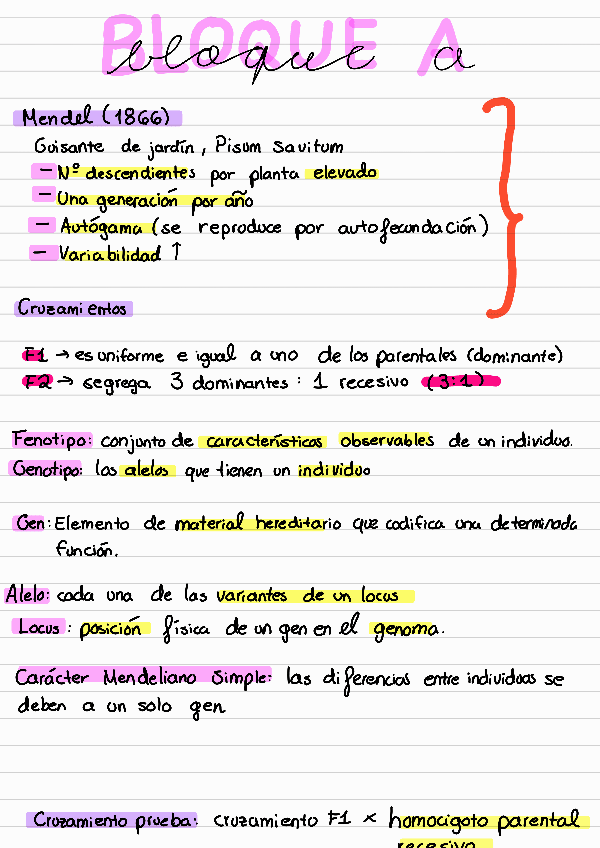 BLOQUE A
bloque a
Mendel (1866)
Guisante de jardín, Pisum Savitum
- Nº descendientes por planta elevado
- Una generación por año
- Autógama (se reproduce por autofecundación)
- Variabilidad ↑
Cruzamientos
F1 → es uniforme e igual a uno de los parentales (dominante)
F2 → segrega 3 dominantes : 1 recesivo (3:1)
Fenotipo: conjunto de características observables de un individuo.
Genotipo: los alelos que tienen un individuo
Gen: Elemento de material hereditario que codifica una determinada
función.
Alelo: cada una de las variantes de un locus
Locus: posición física de un gen en el genoma.
Carácter Mendeliano Simple: las diferencias entre individuos se
deben a un solo gen
Cruzamiento prueba: cruzamiento F1 × homocigoto parental
recesivo